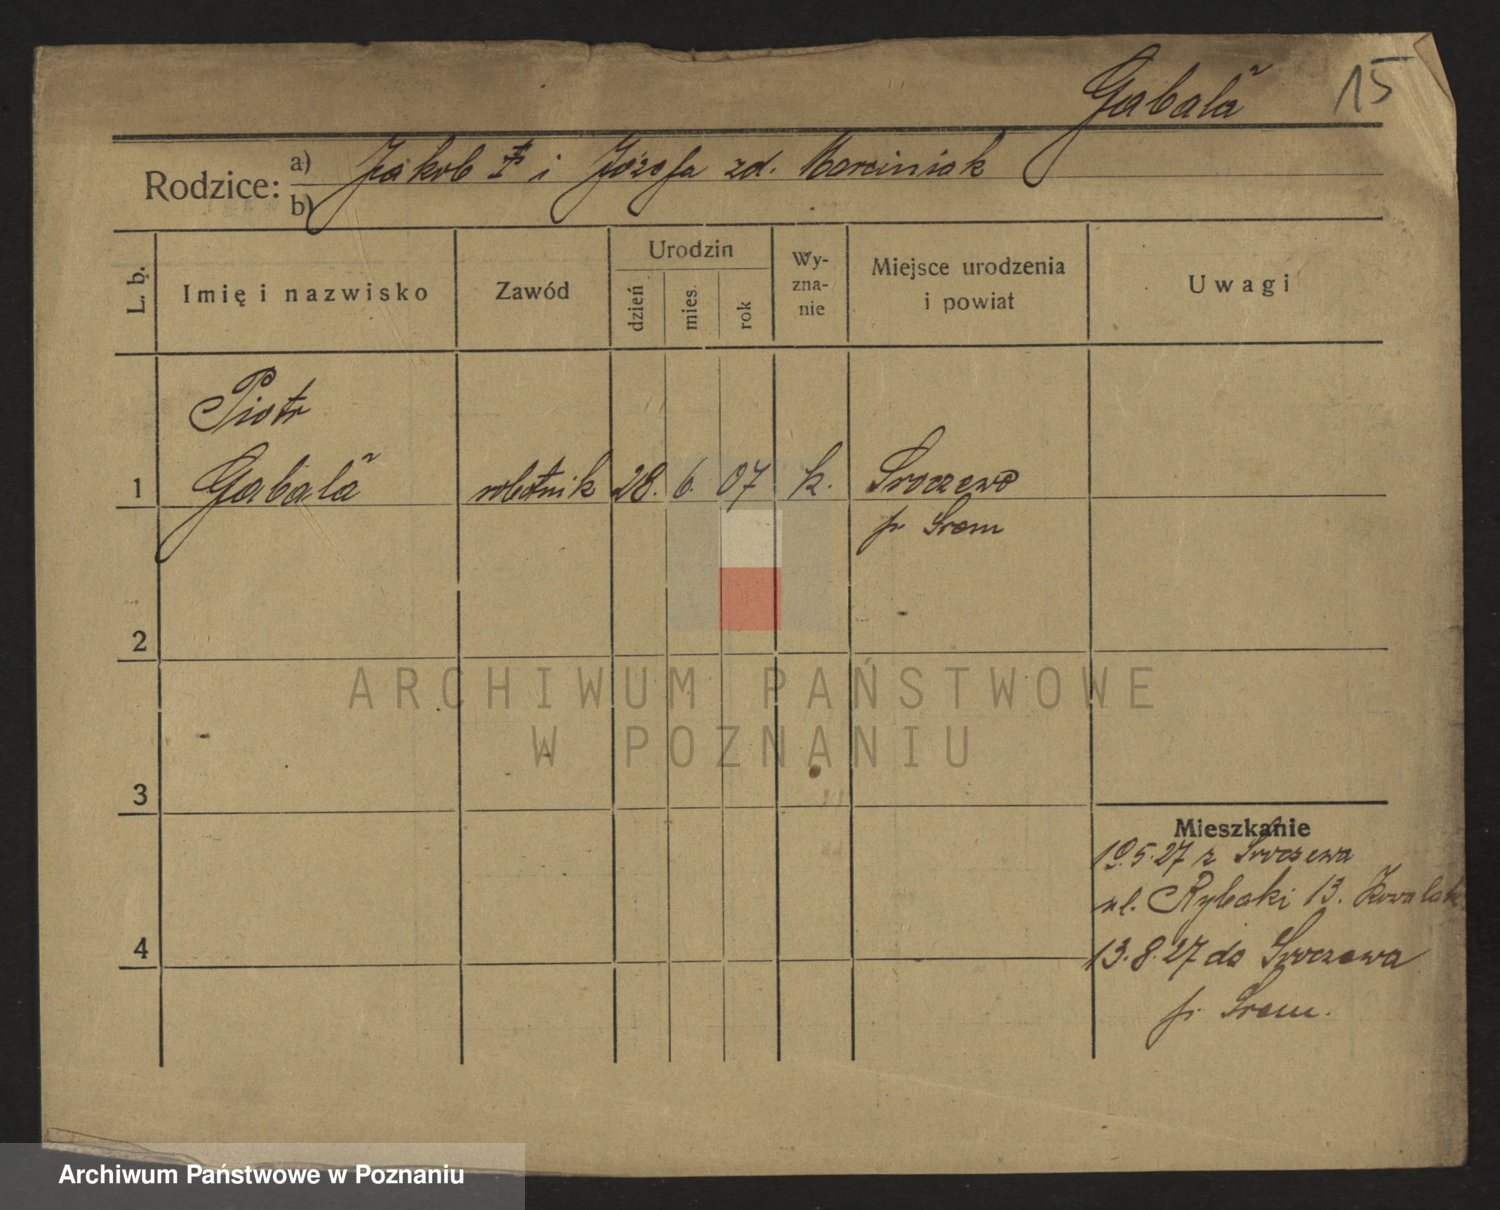 Gabała 15
Rodzice: a) Jakob † i Józefa zd. Marciniak
b)
L. b. Imię i nazwisko Zawód Urodzin dzień mies. rok Wy-zna-nie Miejsce urodzenia i powiat Uwagi
Piotr
1 Gabała robotnik 28. 6. 07 k. Sroczewo
p. Śrem
2
ARCHIWUM PAŃSTWOWE
W POZNANIU
3
Mieszkanie
10.5.27 z Sroczewa
ul. Rybaki 13. Kowalak
4 13.8.27 do Sroczewa
p. Śrem.
Archiwum Państwowe w Poznaniu